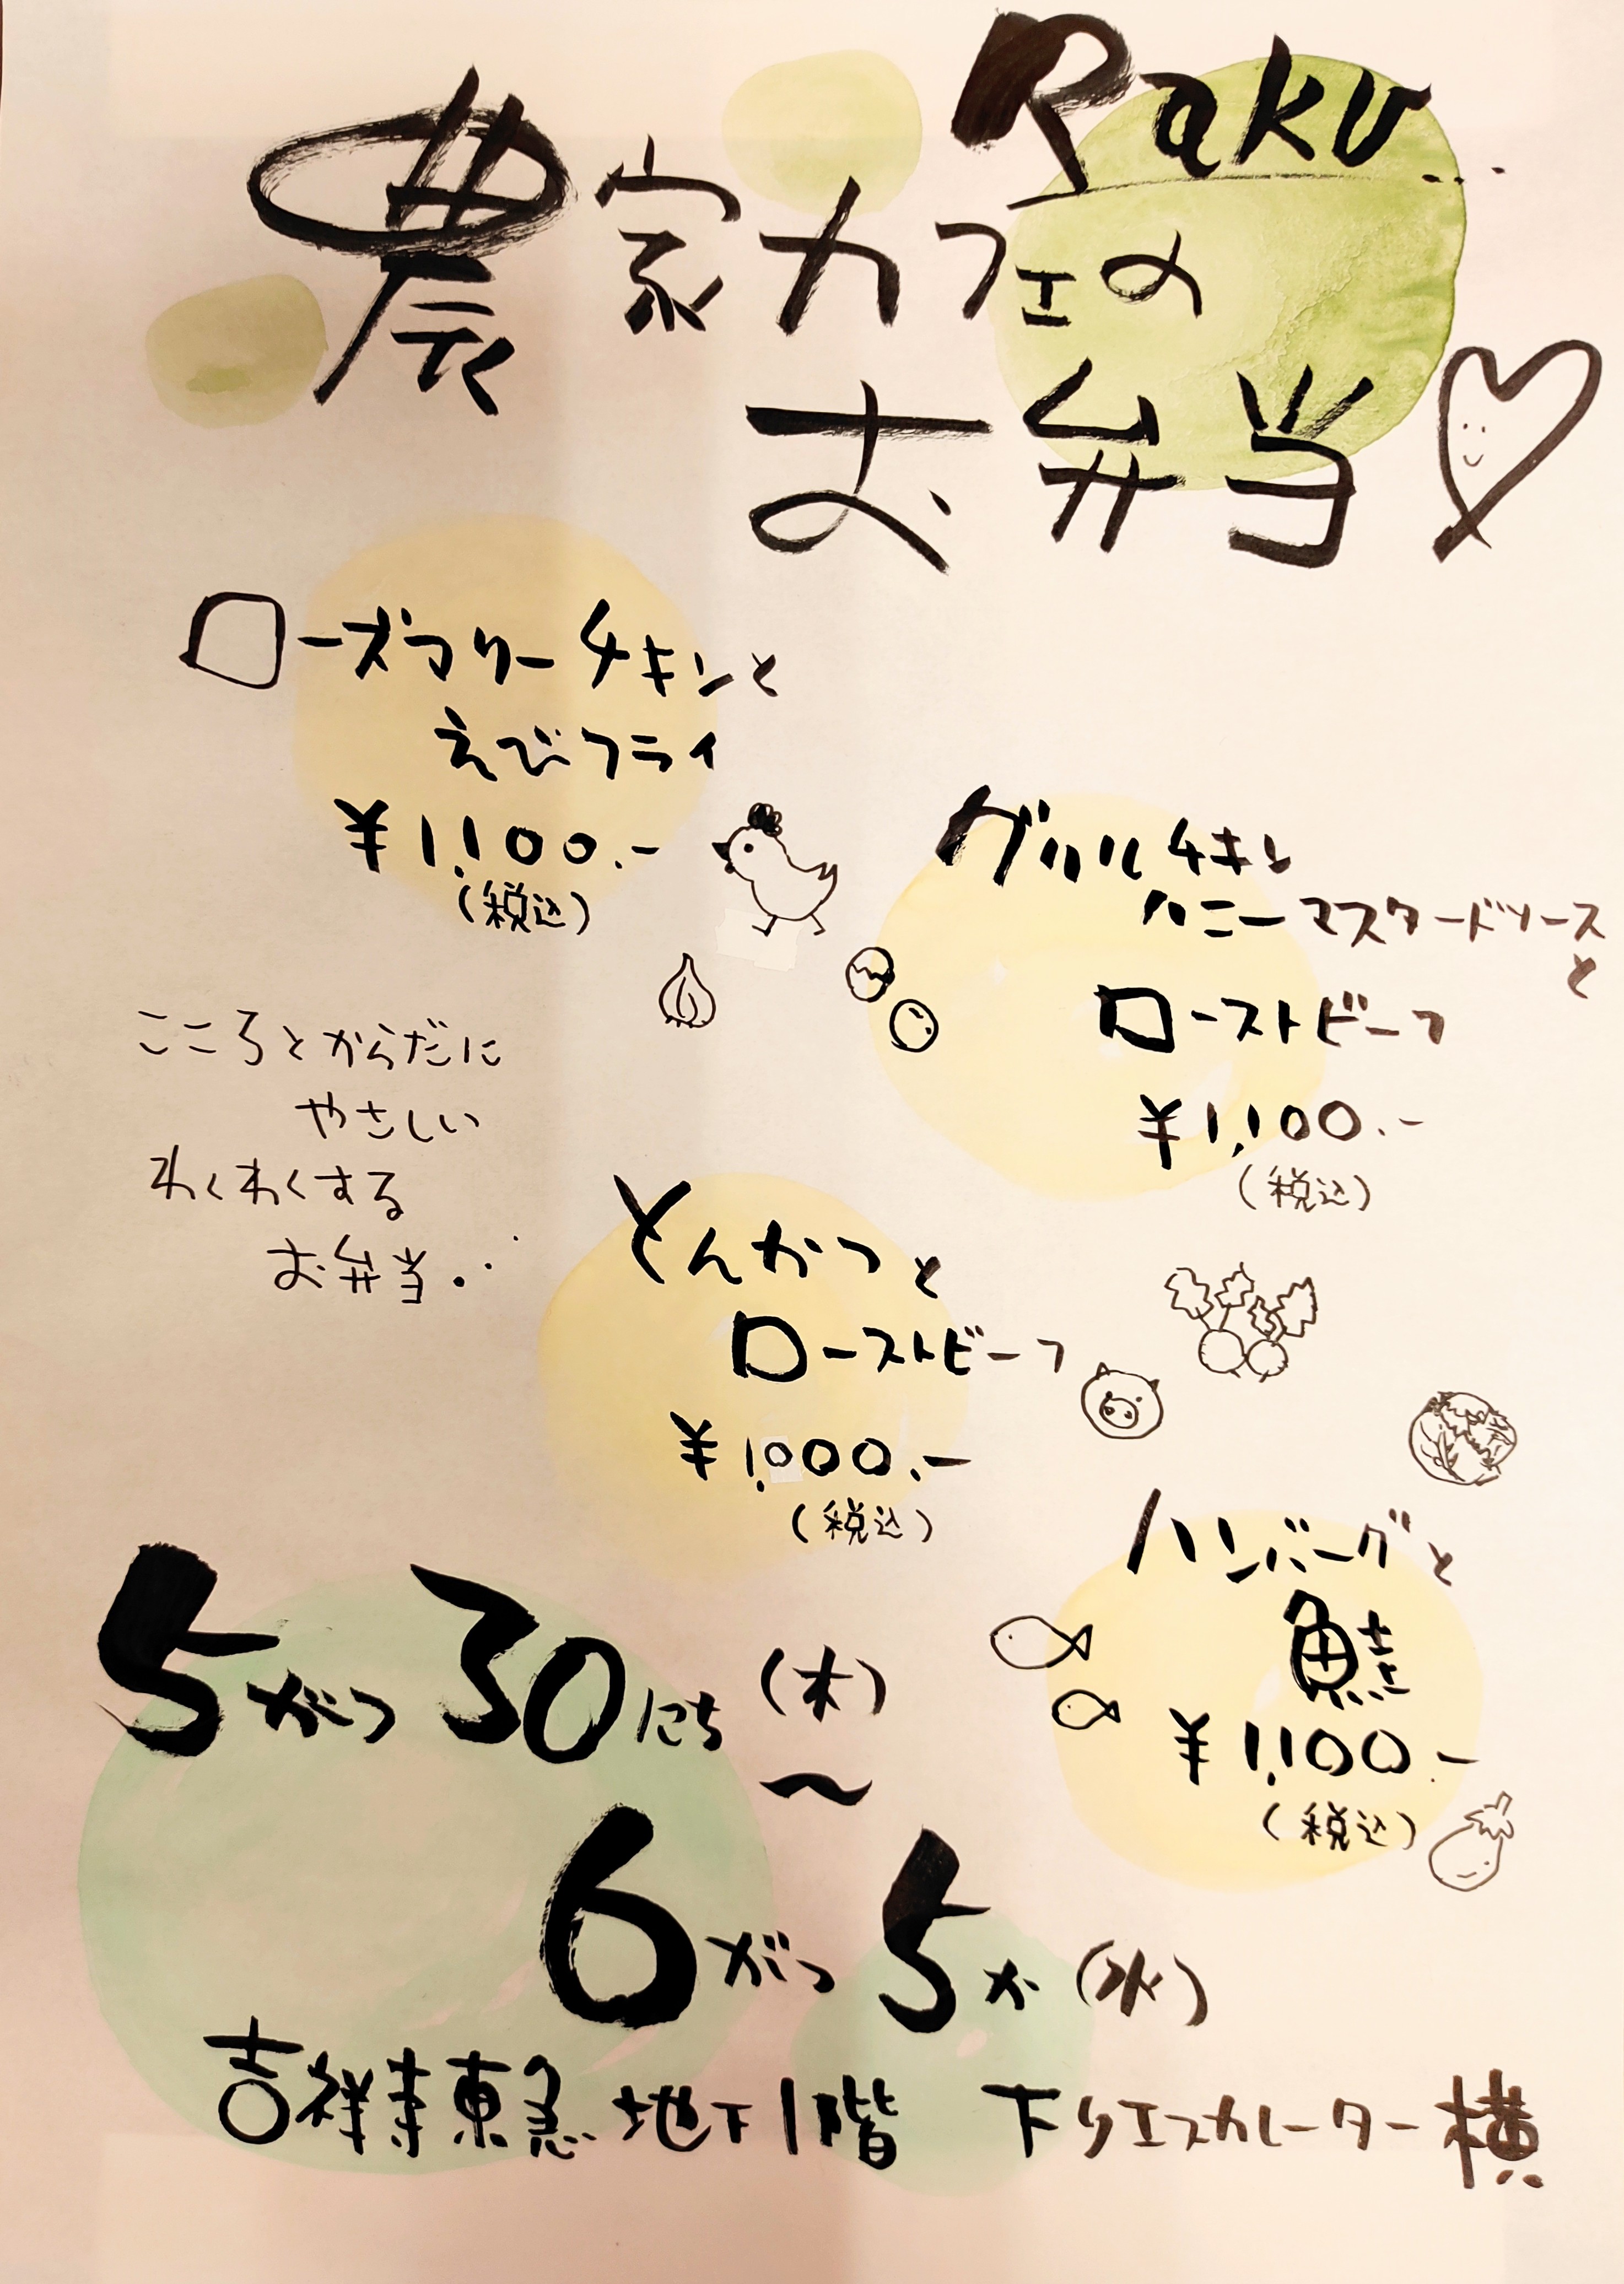 Raku...
農家カフェの
お弁当
ローズマリーチキンと
えびフライ
¥1,100.-
(税込)
グリルチキン
ハニーマスタードソース
と
ローストビーフ
¥1,100.-
(税込)
こころとからだに
やさしい
わくわくする
お弁当..
とんかつと
ローストビーフ
¥1,000.-
(税込)
ハンバーグと
鮭
¥1,100.-
(税込)
5がつ30にち(木)
〜
6がつ5か(水)
吉祥寺東急地下1階 下りエスカレーター横